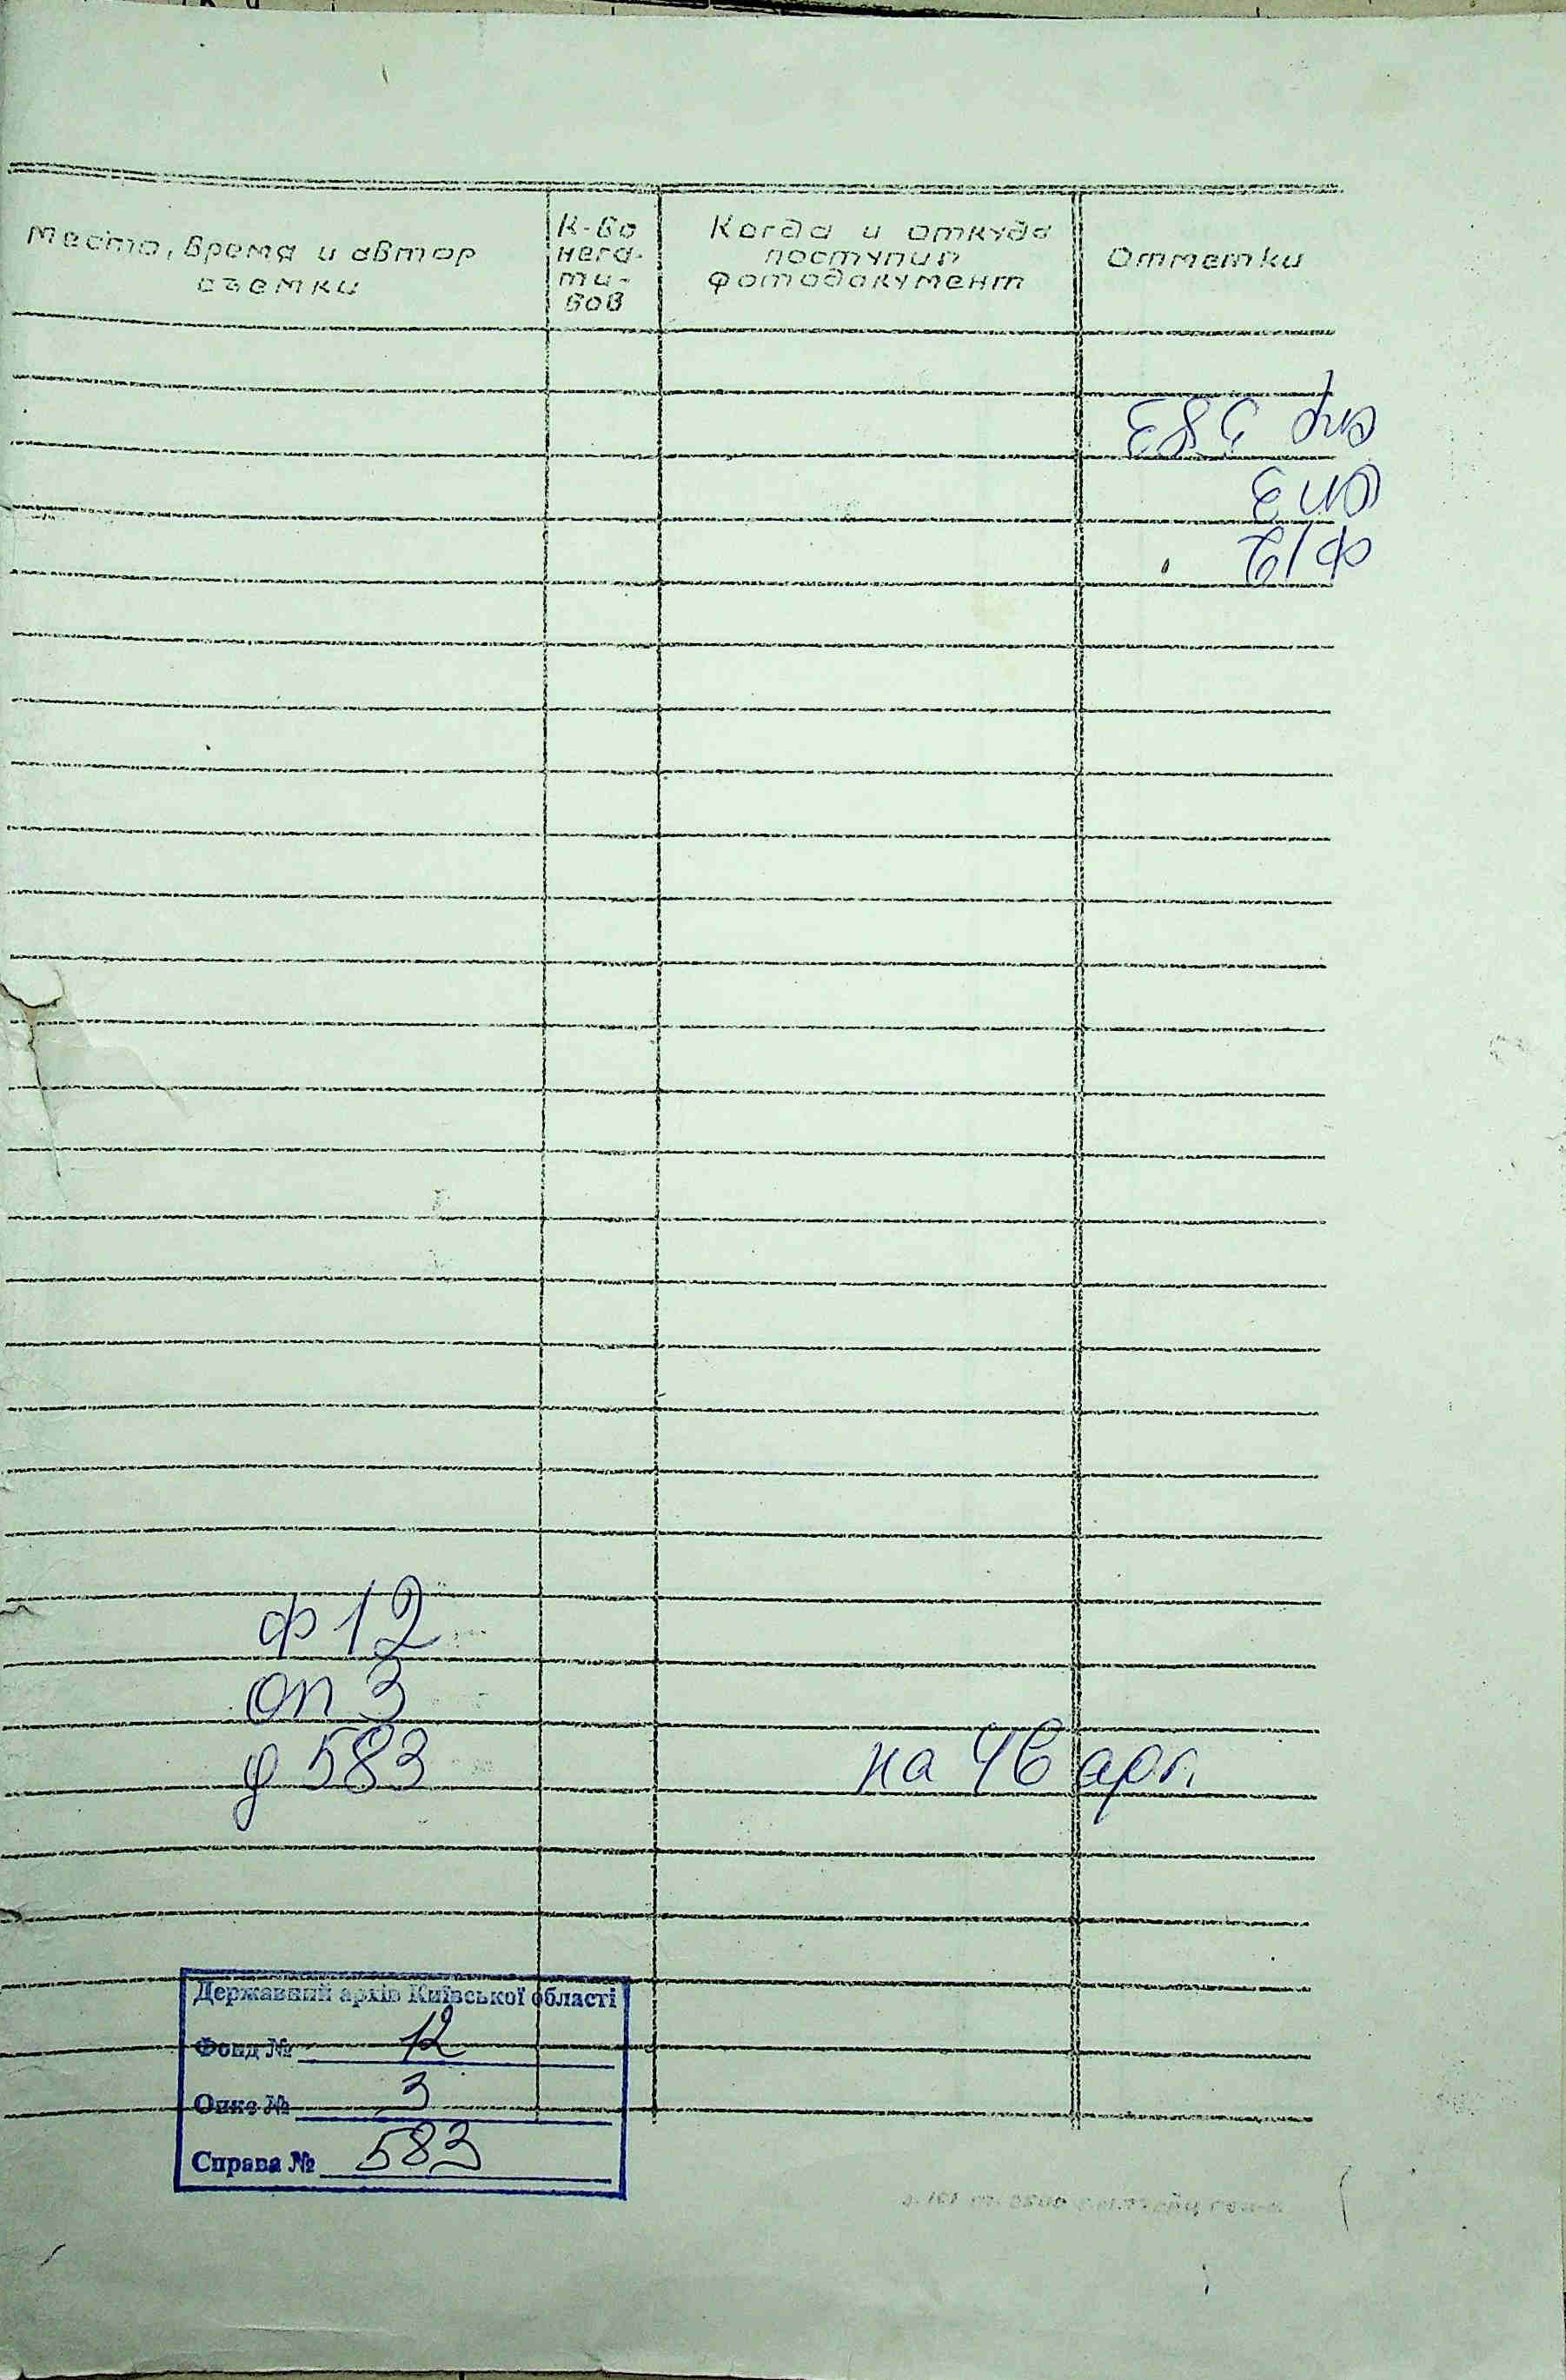 Место, время и автор
съемки
К-во
нега-
ти-
вов
Когда и откуда
поступил
фотодокумент
Отметки
спр 583
оп 3
ф 12
ф 12
оп 3
д 583
на 46 арк.
Державний архів Київської області
Фонд № 12
Опис № 3
Справа № 583